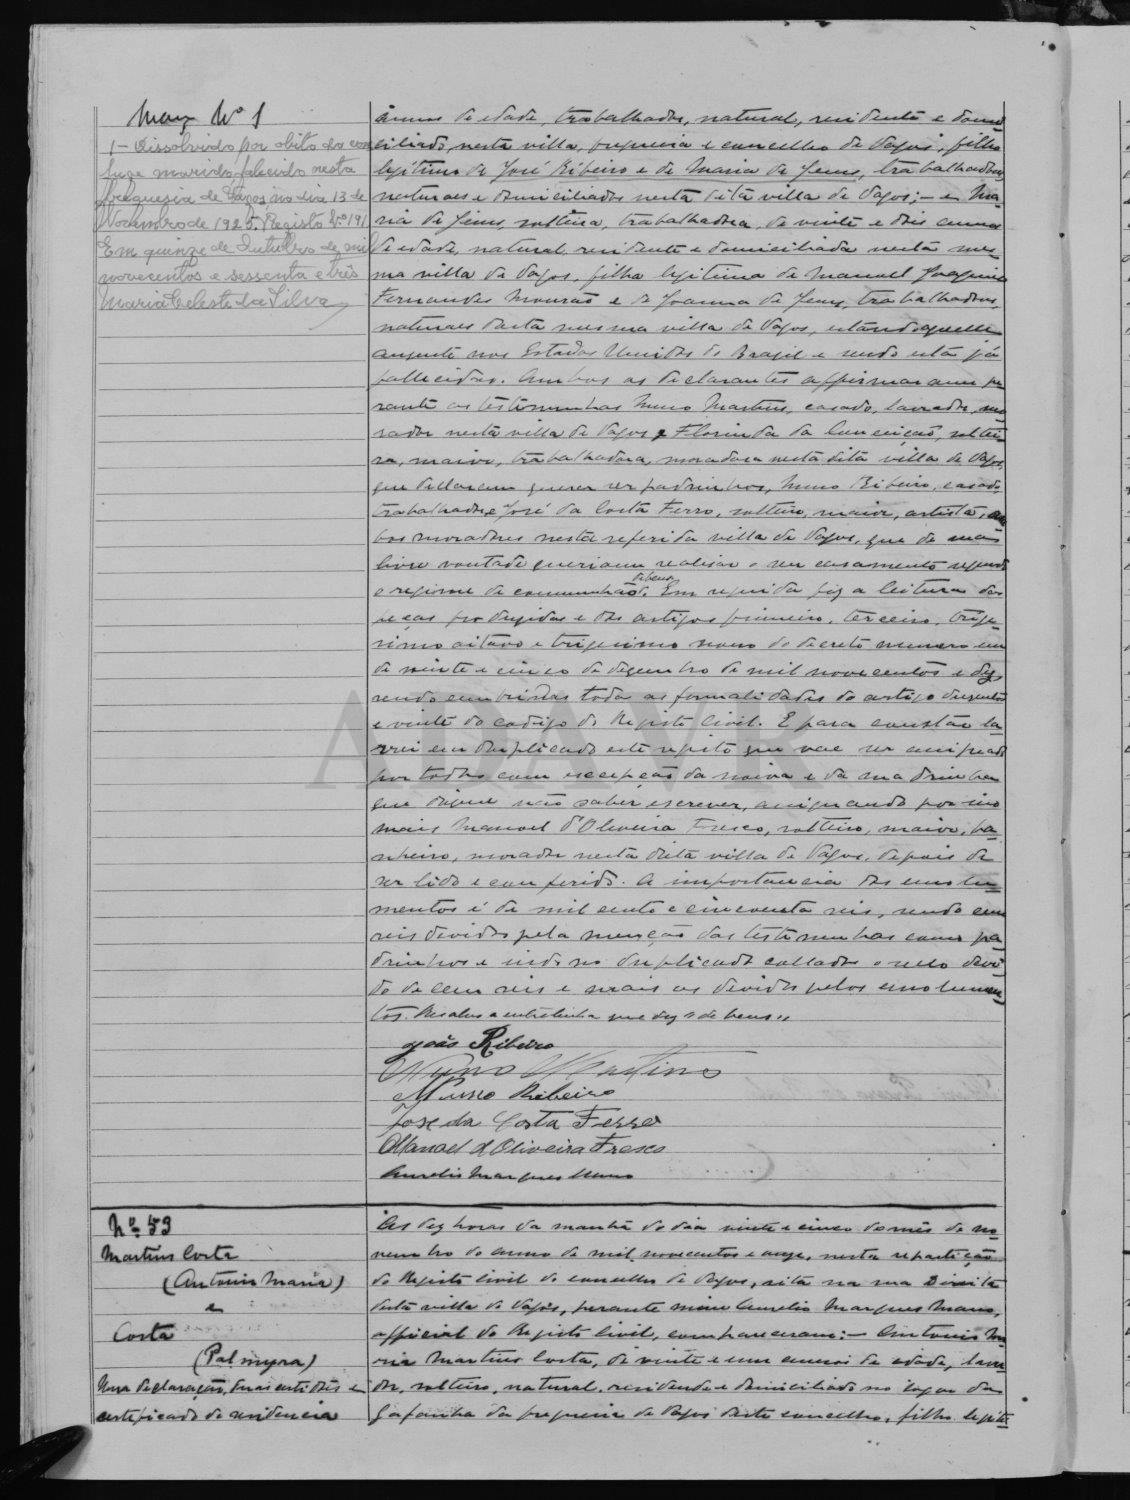 Marg Nº 1
1 - Dissolvido por obito do con
juge marido, falecido nesta
freguesia de Vagos, no dia 13 de
Novembro de 1925. Registo Nº 191
Em quinze de Outubro de mil
novecentos e sessenta e três
Maria Celeste da Silva
annos de edade, trabalhador, natural, residente e domi
ciliado, nesta villa, freguesia e concelho de Vagos, filho
legitimo de José Ribeiro e de Maria de Jesus, trabalhadores
naturaes e domiciliados nesta dita villa de Vagos; - e Ma
ria de Jesus, solteira, trabalhadora, de vinte e dois annos
de edade, natural, residente e domiciliada nesta mes
ma villa de Vagos, filha legitima de Manuel Joaquim
Fernandes Mourão e de Joanna de Jesus, trabalhadores,
naturaes desta mesma villa de Vagos, estando aquelle
ausente nos Estados Unidos do Brazil e sendo esta já
fallecida. Ambos os declarantes affirmaram pe
rante as testemunhas Nuno Martins, casado, lavrador, mo
rador nesta villa de Vagos e Florinda da Conceição, soltei
ra, maior, trabalhadora, moradora nesta dita villa de Vagos,
que declaram querer ser padrinhos, Nuno Ribeiro, casado,
trabalhador e José da Costa Ferro, solteiro, maior, artista, am
bos moradores nesta referida villa de Vagos, que de sua
livre vontade queriam realisar o seu casamento segundo
o regime de communhão de bens. Em seguida fiz a leitura das
peças produzidas e dos artigos primeiro, terceiro, trige
simo oitavo e trigesimo nono do decreto numero um
de vinte e cinco de dezembro de mil novecentos e dez,
sendo cumpridas todas as formalidades do artigo duzentos
e vinte do codigo do Registo Civil. E para constar la
vrei em duplicado este registo que vae ser assignado
por todos com excepção da noiva e da madrinha
que disse não saber escrever, assignando por
mais Manoel d'Oliveira Fresco, solteiro, maior,
morador nesta dita villa de Vagos, depois de
ser lido e conferido. A importancia dos emolu
mentos é de mil cento e cincoenta reis, sendo cem
reis devidos pela menção das testemunhas como pa
drinhos e indo no duplicado collados o sello devi
do de cem reis e mais os devidos pelos emolumen
tos. Resalvo a entrelinha que diz "de bens"
João Ribeiro
Nuno Martins
Nuno Ribeiro
Jose da Costa Ferro
Manoel d'Oliveira Fresco
Aurelio Marques Mano
ADAVR
Nº 53
Martins Costa
(Antonio Maria)
e
Costa
(Palmyra)
Uma declaração, duas certidões e
certificado de residencia
Ás dez horas da manhã do dia vinte e cinco do mês de no
vembro do anno de mil novecentos e onze, nesta repartição
do Registo Civil do concelho de Vagos, sita na rua Direita
desta villa de Vagos, perante mim Aurelio Marques Mano,
official do Registo Civil, compareceram: - Antonio Ma
ria Martins Costa, de vinte e um annos de edade, lavra
dor, solteiro, natural, residente e domiciliado no logar da
Gafanha da freguesia de Vagos deste concelho, filho legiti